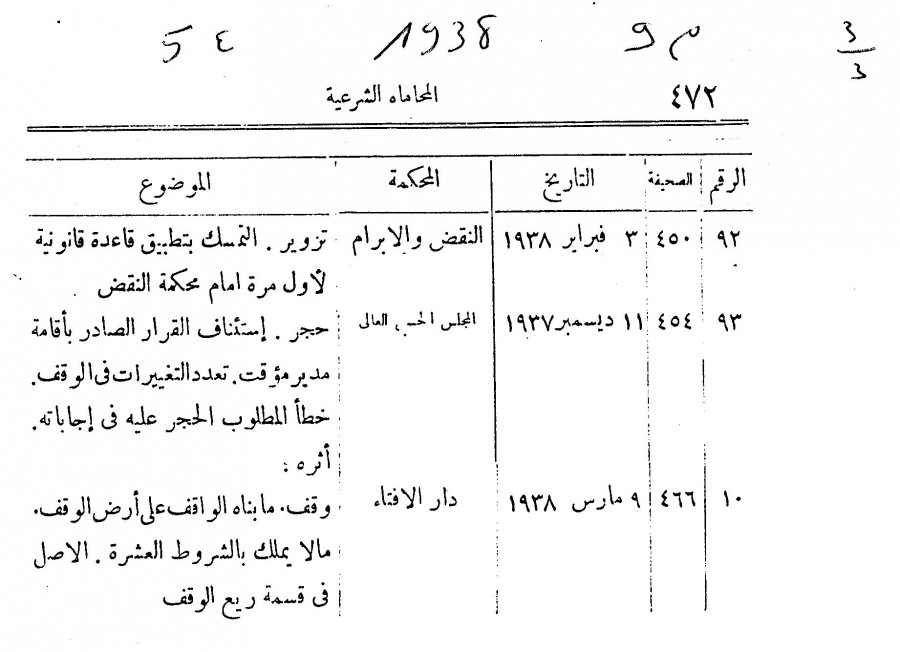 ٥٤ 1938 م 9 3/3
٤٧٢ المحاماه الشرعية
الرقم الصحيفة التاريخ المحكمة الموضوع
٩٢ ٤٥٠ ٣ فبراير ١٩٣٨ النقض والابرام تزوير . التمسك بتطبيق قاعدة قانونية
لأول مرة امام محكمة النقض
٩٣ ٤٥٤ ١١ ديسمبر ١٩٣٧ المجلس الحسبى العالى حجر . إستئناف القرار الصادر بأقامة
مدير مؤقت . تعدد التغييرات فى الوقف .
خطأ المطلوب الحجر عليه فى إجاباته .
أثره :
١٠ ٤٦٦ ٩ مارس ١٩٣٨ دار الافتاء وقف . ما بناه الواقف على أرض الوقف .
مالا يملك بالشروط العشرة . الاصل
فى قسمة ريع الوقف